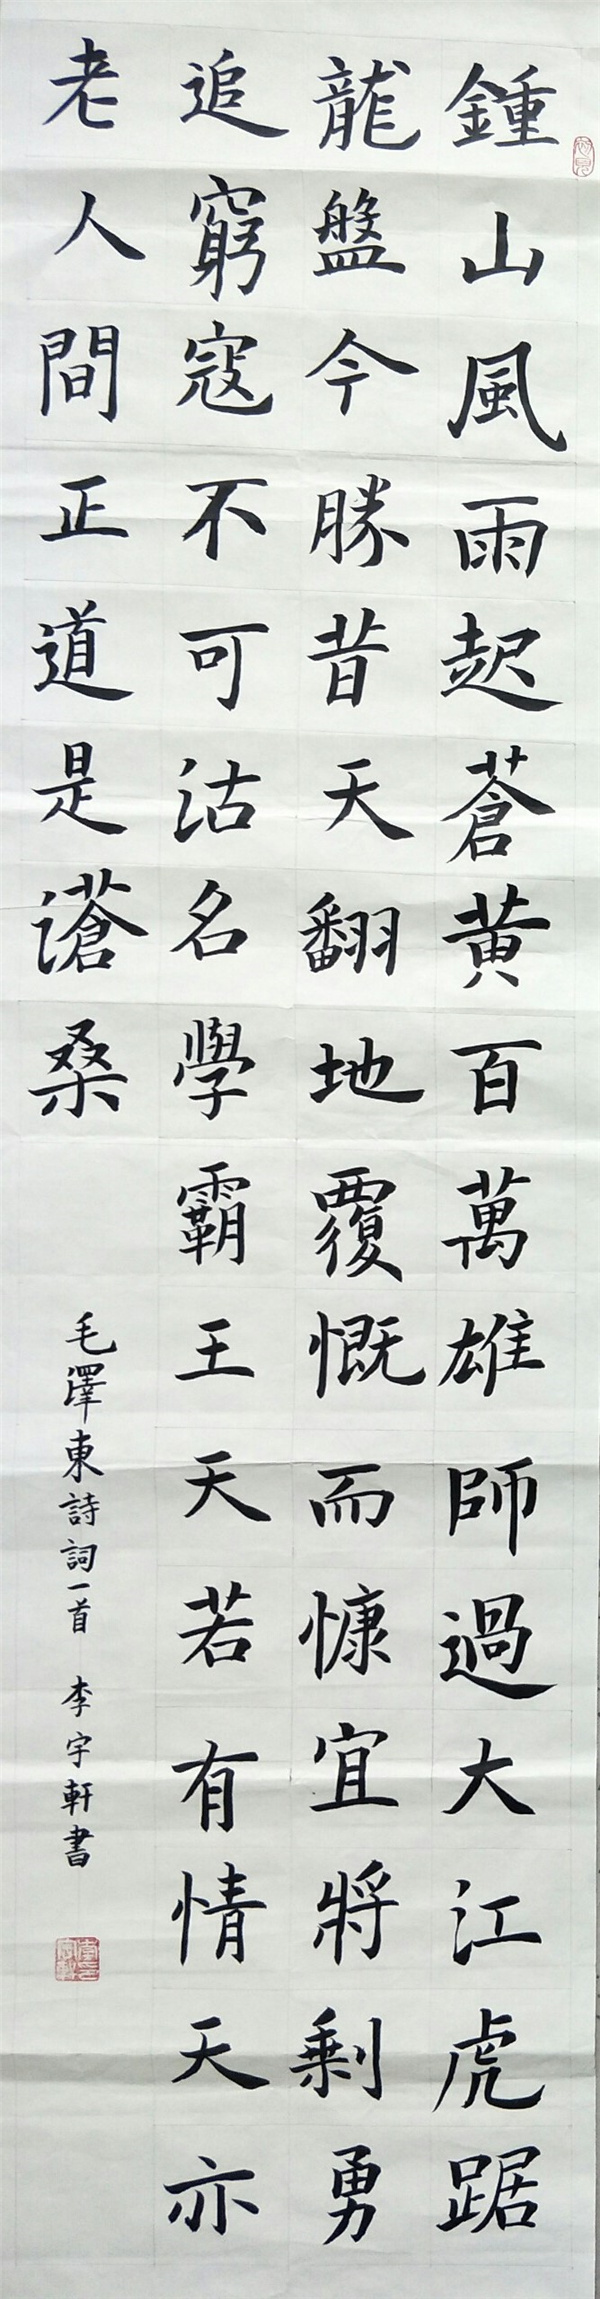 鍾山風雨起蒼黄百萬雄師過大江虎踞
龍盤今勝昔天翻地覆慨而慷宜將剩勇
追窮寇不可沽名學霸王天若有情天亦
老人間正道是滄桑
毛澤東詩詞一首 李宇軒書